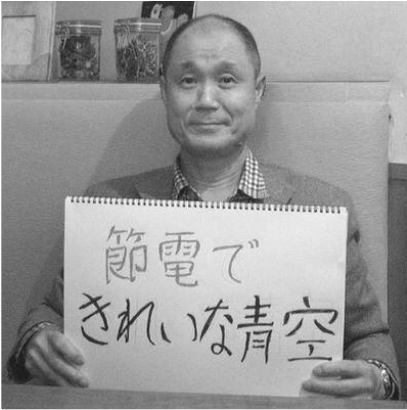 節電で
きれいな青空